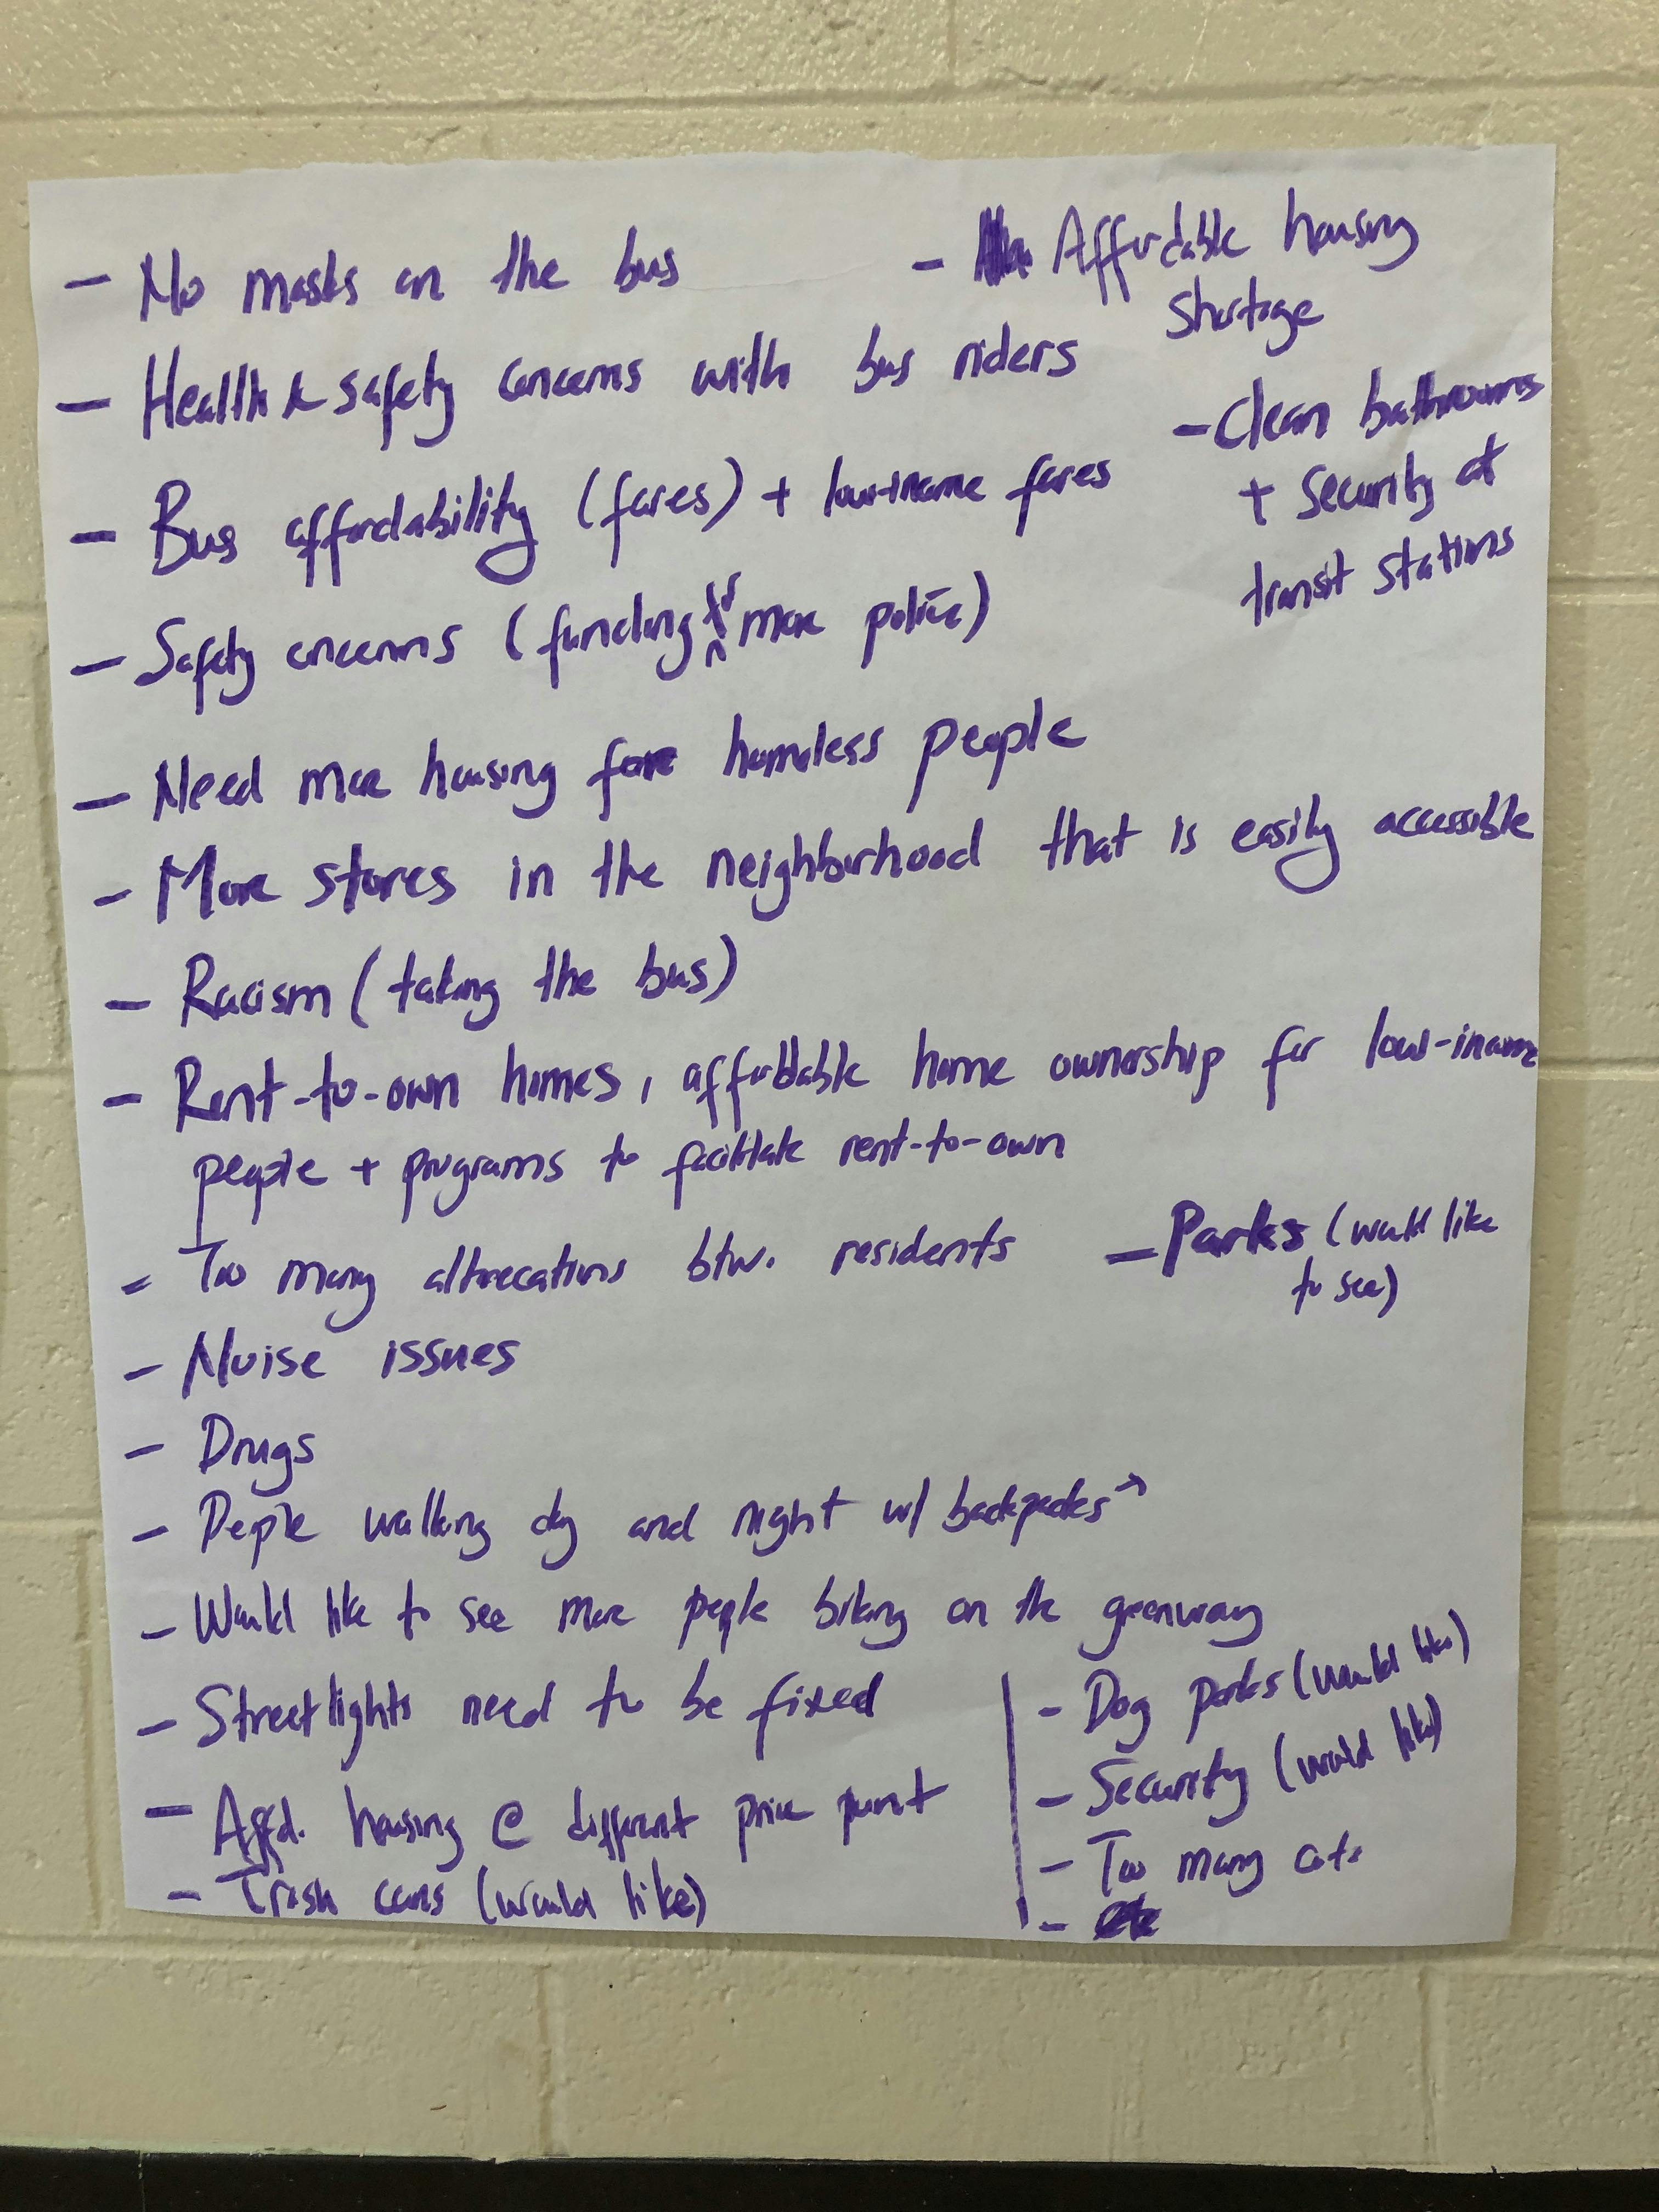 - No masks on the bus
- Health & safety concerns with bus riders
- Bus affordability (fares) + low-income fares
- Safety concerns (funding for more police)
- Need more housing for homeless people
- More stores in the neighborhood that is easily accessible
- Racism (taking the bus)
- Rent-to-own homes, affordable home ownership for low-income
people + programs to facilitate rent-to-own
- Too many altercations btw. residents
- Noise issues
- Drugs
- People walking day and night w/ backpacks →
- Would like to see more people biking on the greenway
- Streetlights need to be fixed
- Affd. housing @ different price point
- Trash cans (would like)
- Affordable housing
shortage
- Clean bathrooms
+ Security at
transit stations
- Parks (would like
to see)
- Dog parks (would like)
- Security (would like)
- Too many cats
-